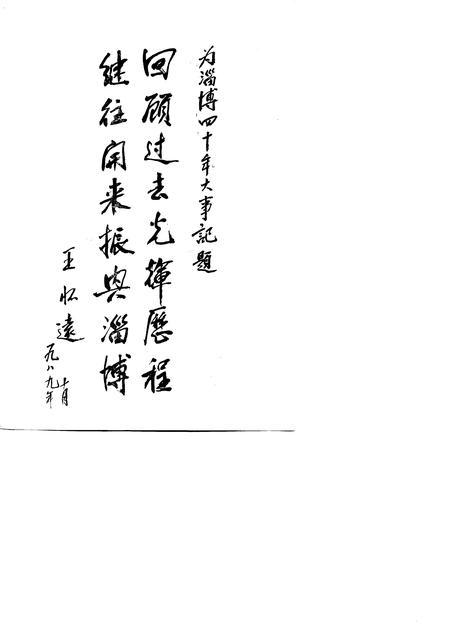 为淄博四十年大事記題
回顾过去光輝歷程
继往開来振興淄博
王怀遠
一九八九年
十月